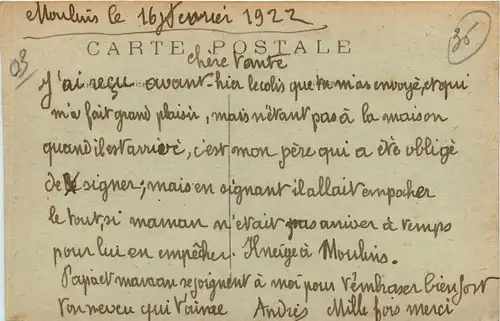 Moulins le 16 Fevrier 1922
35
03
CARTE POSTALE
chère tante
J'ai reçu avant-hier le colis que tu m'as envoyé, et qui
m'a fait grand plaisir, mais n'étant pas à la maison
quand il est arrivé, c'est mon père qui a été obligé
de signer; mais en signant il allait empocher
le tout, si maman n'était pas arriver à temps
pour lui en empêcher. Il neige à Moulins.
Papa et maman se joignent à moi pour t'embrasser bien fort
Ton neveu qui t'aime André Mille fois merci